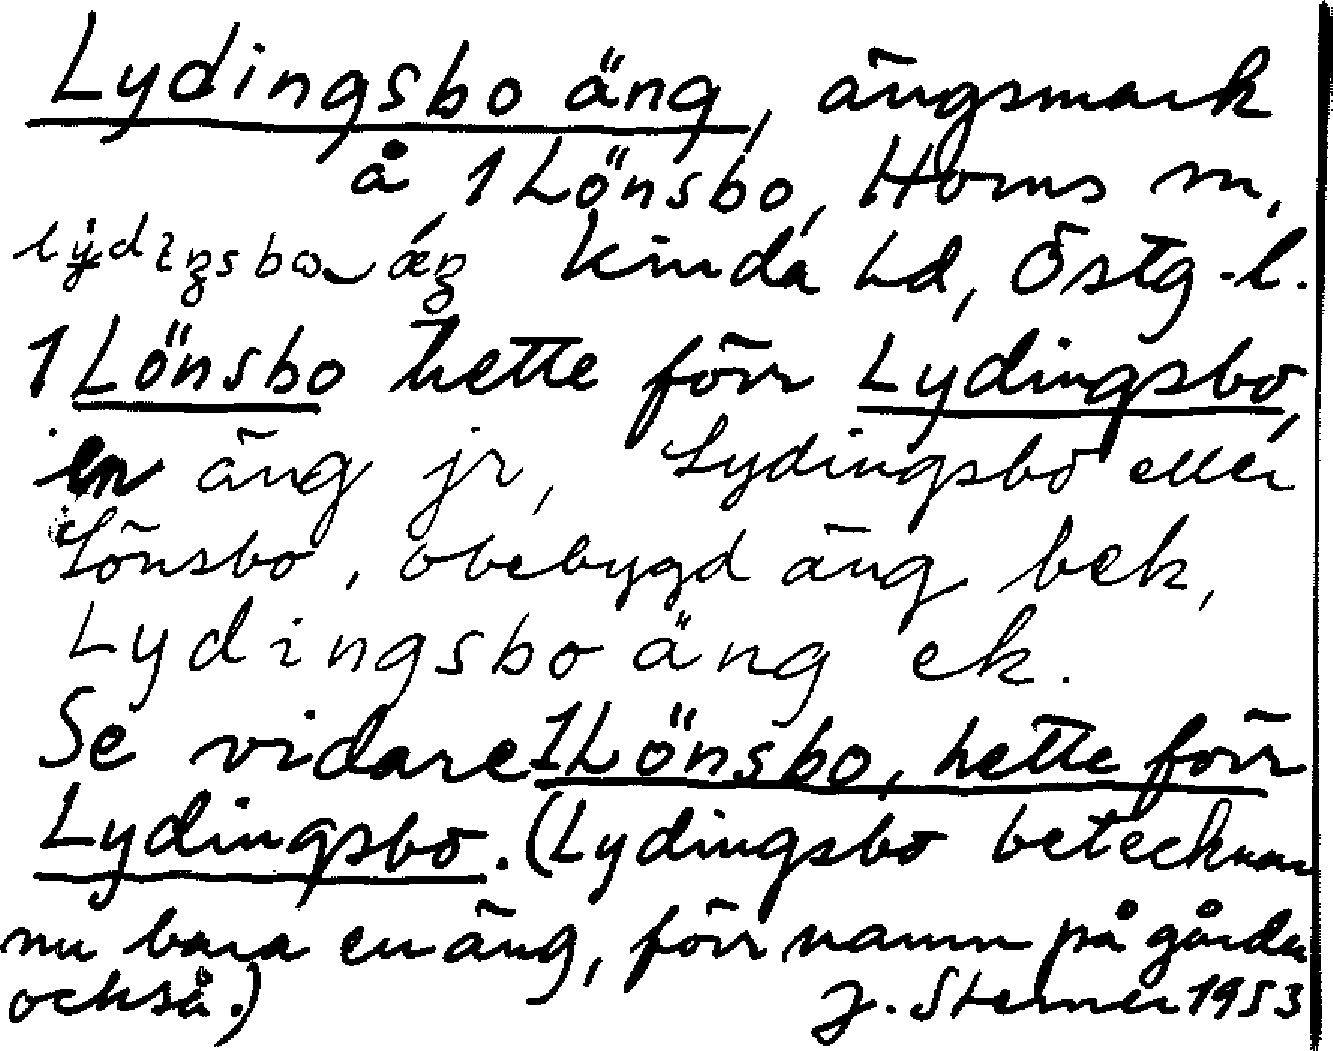 Lydingsbo äng, ängsmark
å 1 Lönsbo, Horns sn,
Kinda hd, Östg-l.
1 Lönsbo hette förr Lydingsbo,
en äng jr, Lydingsbo eller
Lönsbo, obebygd äng bek,
Lydingsbo äng ek.
Se vidare 1 Lönsbo, hette förr
Lydingsbo. (Lydingsbo betecknar
nu bara en äng, förr namn på gården
också.) J. Sterner 1953